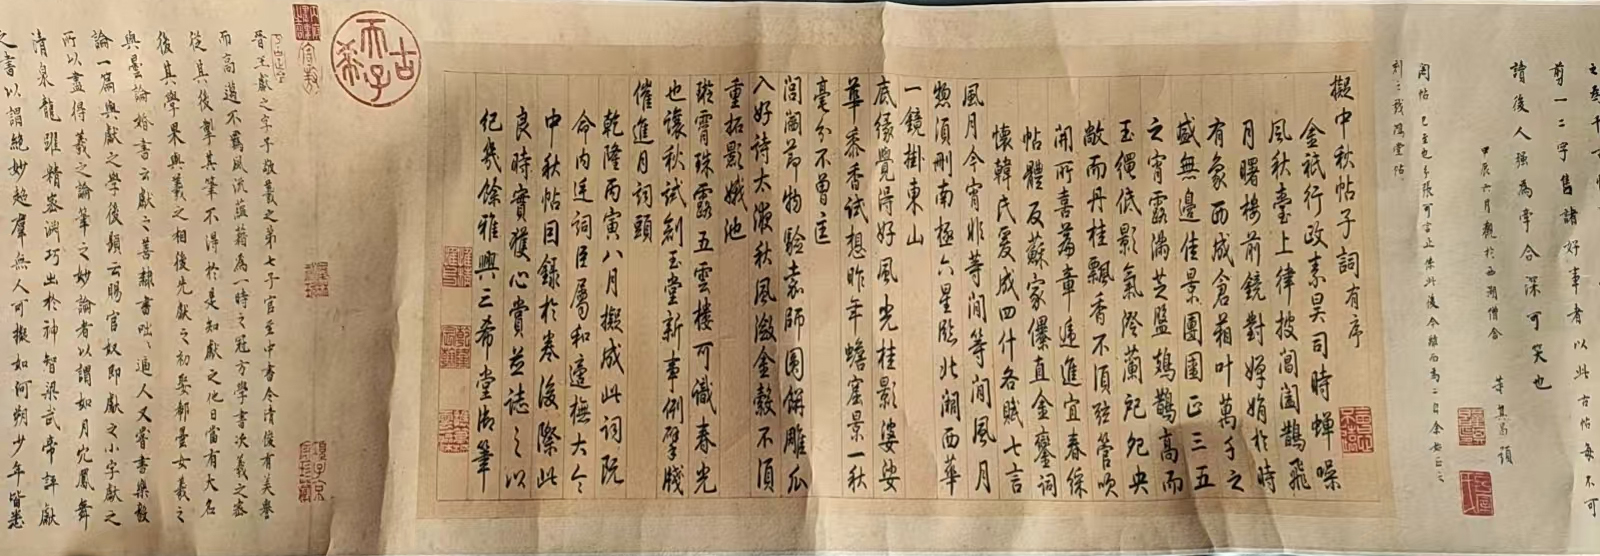 剪一二字售諸好事者以此古帖每不可
讀後人強為牽合深可笑也
甲辰六月觀於西湖僧舍 董其昌題
刻之戲鴻堂帖
擬中秋帖子詞有序
金祇行政素昊司時蟬噪
風秋臺上律披閶闔鵲飛
月曙樓前鏡對嬋娟於時
有象西成倉箱叶萬千之
盛無邊佳景團圞正三五
之宵露滿芝盤鳷鵲高而
玉繩低影氣澄蘭戺央
敞而丹桂飄香不須弦管吹
開所喜篇章遞進宜春綵
帖體反蘇家儤直金鑾詞
懷韓氏爰成四什各賦七言
風月今宵非等閒等閒風月
惣須刪南極六星臨北湖西華
一鏡掛東山
底緣覺得好風光桂影婆娑
華黍香試想昨年蟾窟景一秋
毫分不曾
閶闔節物驗嘉師圓餅雕瓜
入好詩太液秋風激金縠不須
重拓影娥池
霄珠露五雲樓可識春光
也讓秋試剏玉堂新事例擘牋
催進月詞頭
乾隆丙寅八月擬成此詞既
命內廷詞臣屬和遂撫大令
中秋帖因錄於卷後際此
良時實獲心賞並誌之以
紀幾餘雅興三希堂御筆
古希天子
晉王獻之字子敬羲之第七子官至中書令清俊有美譽
而高邁不羈風流蘊藉為一時之冠方學書次羲之密
從其後掣其筆不得於是知獻之他日當有大名
後其學果與羲之相後先獻之初娶郗曇女羲之
與曇論婚書云獻之善隸書咄咄逼人又嘗書樂毅
論一篇與獻之學後題云賜官奴即獻之小字獻之
所以盡得羲之論筆之妙論者以謂如丹穴鳳舞
清泉龍躍精密淵巧出於神智梁武帝評獻
之書以謂絕妙超羣無人可擬如河朔少年皆悉